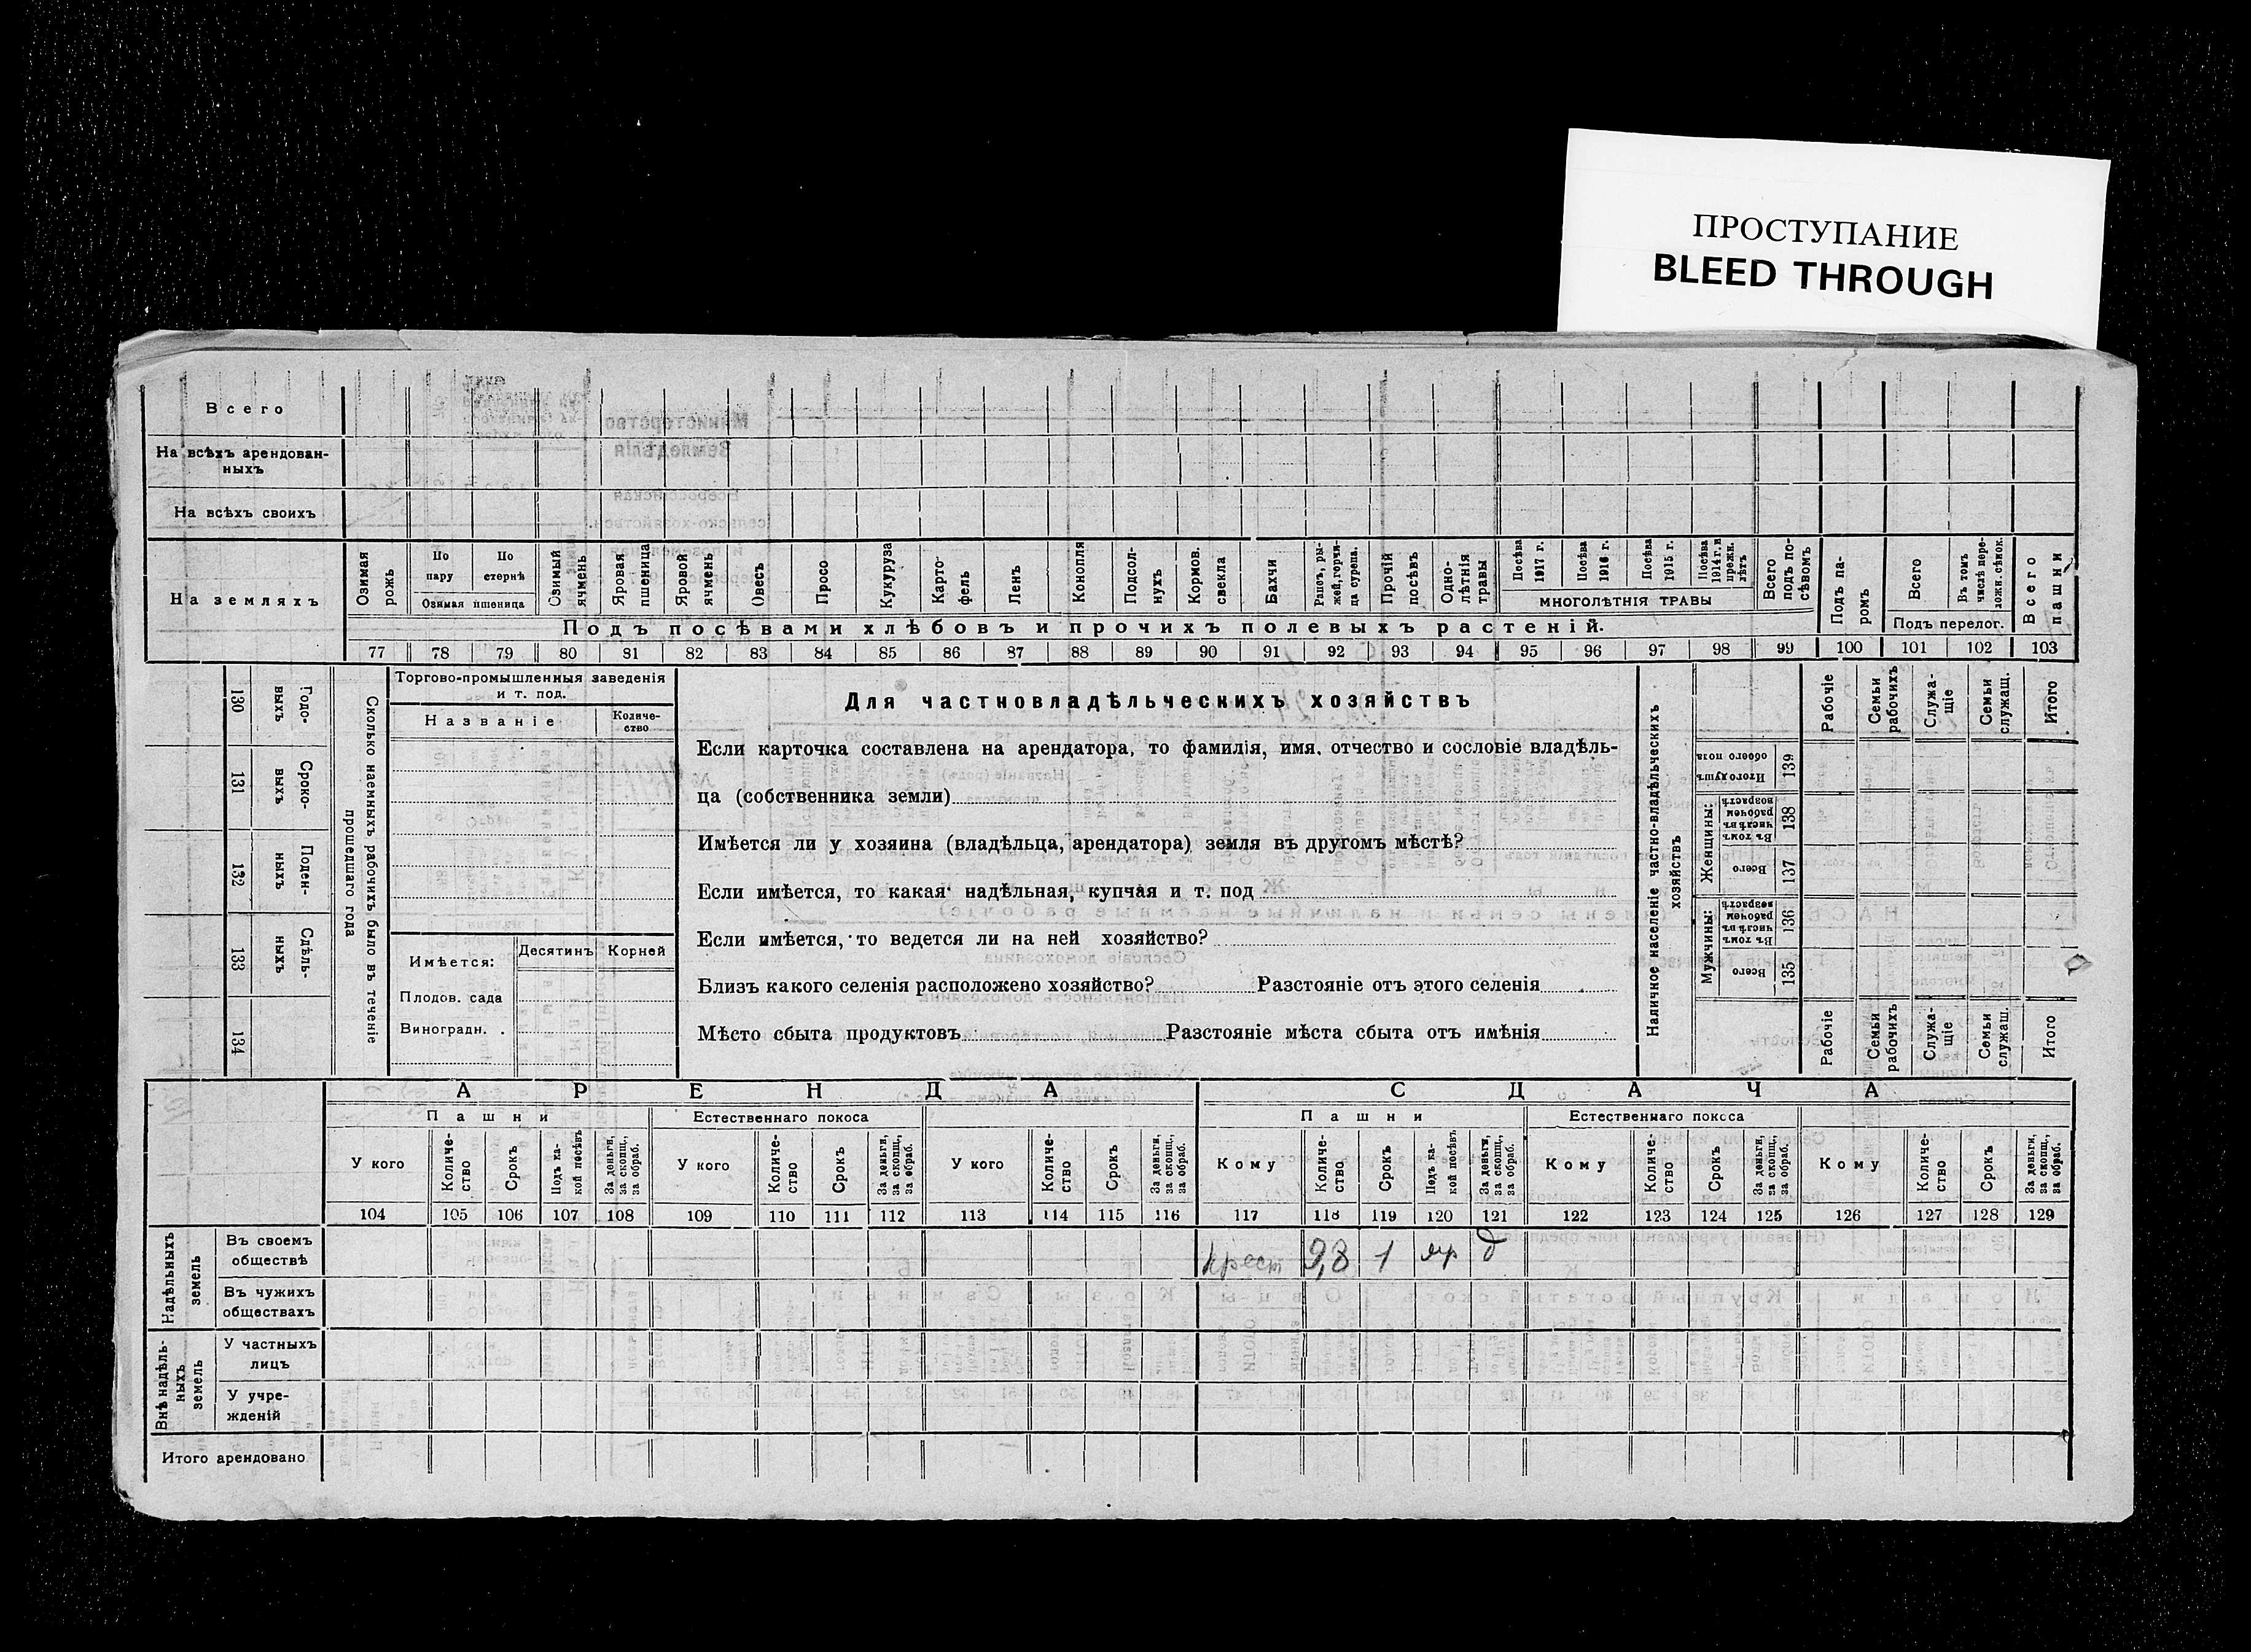 ПРОСТУПАНИЕ
BLEED THROUGH
Всего
На всѣхъ арендован-
ныхъ
На всѣхъ своихъ
На земляхъ
Озимая рожь
По пару
По стернѣ
Озимая пшеница
Озимый ячмень
Яровая пшеница
Яровой ячмень
Овесъ
Просо
Кукуруза
Карто-фель
Ленъ
Конопля
Подсол-нухъ
Кормов. свекла
Бахчи
Рапсъ, ры-жей, горчи-ца сурепа.
Прочій посѣвъ
Одно-лѣтнія травы
Посѣва 1917 г.
Посѣва 1916 г.
Посѣва 1915 г.
Посѣва 1914 г. и прежн. лѣтъ
МНОГОЛѢТНІЯ ТРАВЫ
Всего подъ по-сѣвомъ
Подъ па-ромъ
Всего
Въ томъ числѣ пере-ложн. сѣнок.
Подъ перелог.
Всего пашни
Подъ посѣвами хлѣбовъ и прочихъ полевыхъ растеній.
77 78 79 80 81 82 83 84 85 86 87 88 89 90 91 92 93 94 95 96 97 98 99 100 101 102 103
130 Годо-выхъ
131 Сроко-выхъ
132 Поден-ныхъ
133 Сдѣль-ныхъ
134
Сколько наемныхъ рабочихъ было въ теченіе прошедшаго года
Торгово-промышленныя заведенія
и т. под.
Названіе
Количе-
ство
Имѣется:
Десятинъ
Корней
Плодов. сада
Виноградн.
Для частновладѣльческихъ хозяйствъ
Если карточка составлена на арендатора, то фамилія, имя, отчество и сословіе владѣль-
ца (собственника земли)
Имѣется ли у хозяина (владѣльца, арендатора) земля въ другомъ мѣстѣ?
Если имѣется, то какая: надѣльная, купчая и т. под
Если имѣется, то ведется ли на ней хозяйство?
Близъ какого селенія расположено хозяйство? Разстояніе отъ этого селенія
Мѣсто сбыта продуктовъ Разстояніе мѣста сбыта отъ имѣнія
Наличное населеніе частно-владѣльческихъ хозяйствъ
Рабочіе
Семьи рабочихъ
Служа-щіе
Семьи служащ.
Итого
Итого душъ обоего пола 139
Женщины:
Въ томъ числѣ въ рабочемъ возрастѣ 138
Всего 137
Мужчины:
Въ томъ числѣ въ рабочемъ возрастѣ 136
Всего 135
Рабочіе
Семьи рабочихъ
Служа-щіе
Семьи служащ.
Итого
АРЕНДА
СДАЧА
Пашни
Естественнаго покоса
Пашни
Естественнаго покоса
У кого
Количе-ство
Срокъ
Подъ ка-кой посѣвъ
За деньги, за скопщ., за обраб.
У кого
Количе-ство
Срокъ
За деньги, за скопщ., за обраб.
У кого
Количе-ство
Срокъ
За деньги, за скопщ., за обраб.
Кому
Количе-ство
Срокъ
Подъ ка-кой посѣвъ
За деньги, за скопщ., за обраб.
Кому
Количе-ство
Срокъ
За деньги, за скопщ., за обраб.
Кому
Количе-ство
Срокъ
За деньги, за скопщ., за обраб.
104 105 106 107 108 109 110 111 112 113 114 115 116 117 118 119 120 121 122 123 124 125 126 127 128 129
Надѣльныхъ земель
Въ своемъ
обществѣ
Крест 9,8 1 яр д
Въ чужихъ
обществахъ
Внѣ надѣль-ныхъ земель
У частныхъ
лицъ
У учре-
жденій
Итого арендовано